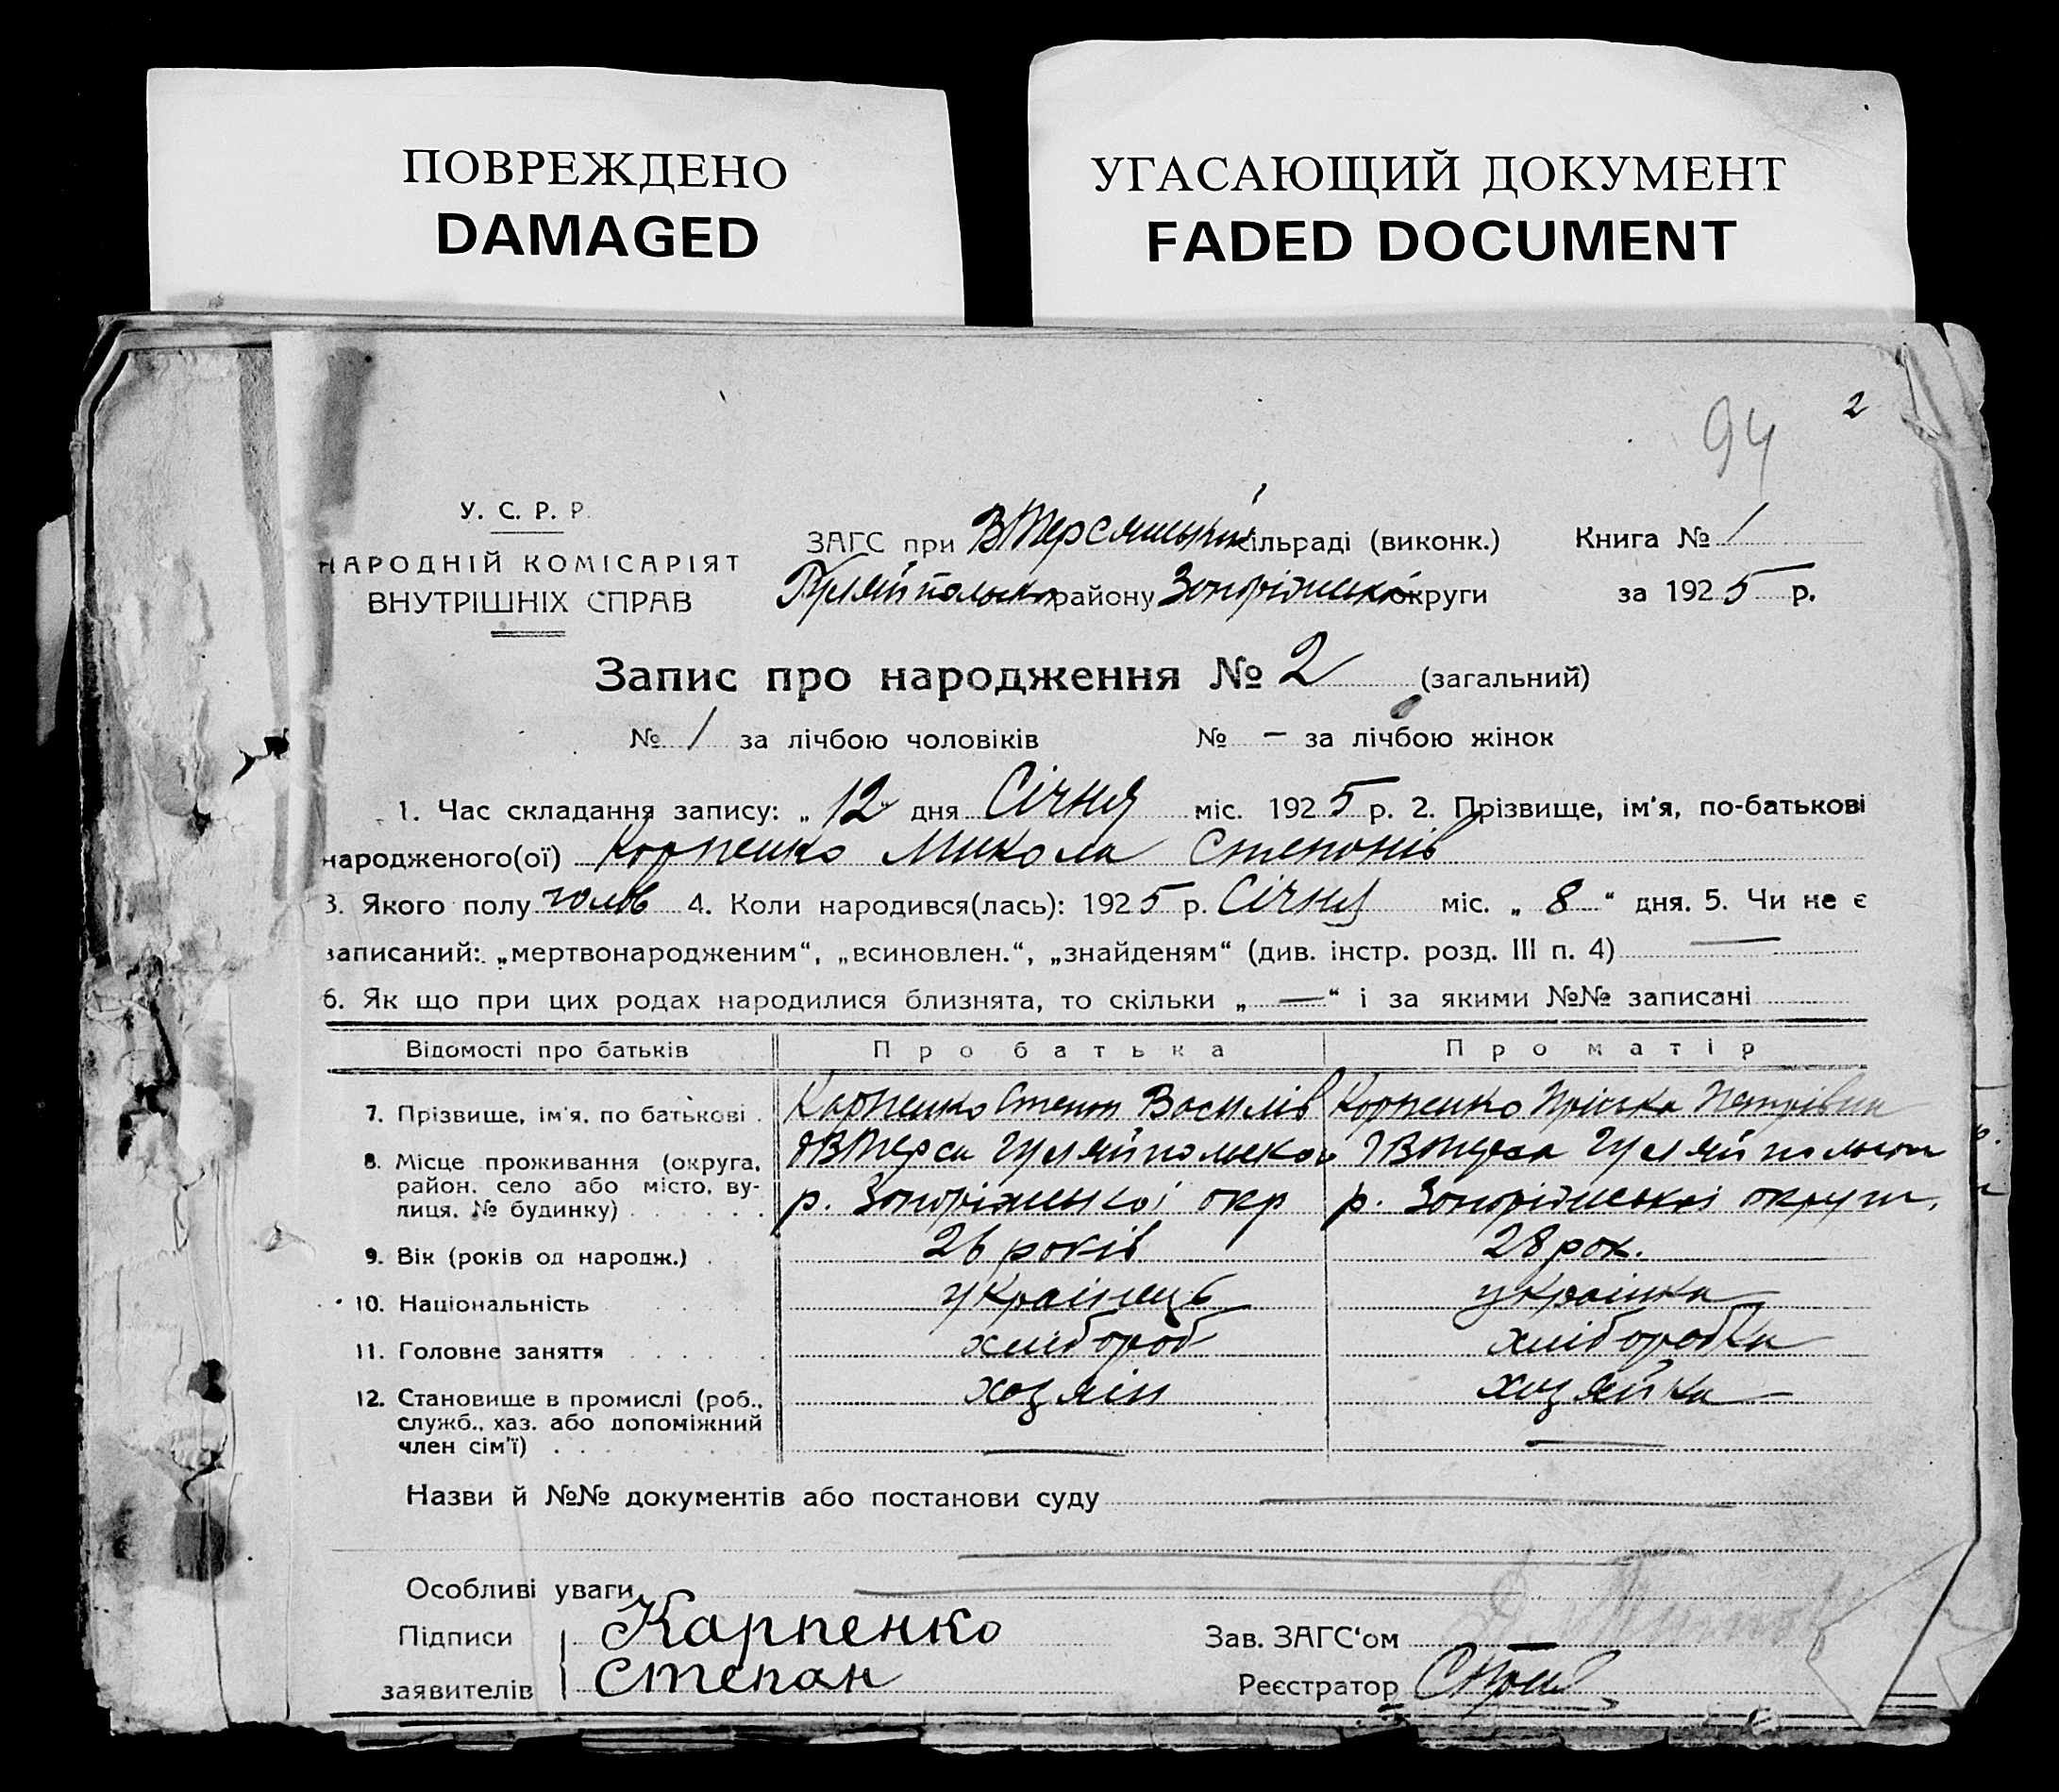 ПОВРЕЖДЕНО
DAMAGED
УГАСАЮЩИЙ ДОКУМЕНТ
FADED DOCUMENT
2
94
У. С. Р. Р.
НАРОДНІЙ КОМІСАРІЯТ
ВНУТРІШНІХ СПРАВ
ЗАГС при сільраді (виконк.) Книга № 1
Гуляйпольск району Запоріжської округи за 1925 р.
Запис про народження № 2 (загальний)
№ 1 за лічбою чоловіків № — за лічбою жінок
1. Час складання запису: „12" дня Січня міс. 1925 р. 2. Прізвище, ім'я, по-батькові
народженого(ої) Карпенко Микола Степанів
3. Якого полу чолов 4. Коли народився(лась): 1925 р. Січня міс. „8" дня. 5. Чи не є
записаний: „мертвонародженим", „всиновлен.", „знайденям" (див. інстр. розд. III п. 4) —
6. Як що при цих родах народилися близнята, то скільки „—" і за якими №№ записані
Відомості про батьків Про батька Про матір
7. Прізвище, ім'я, по батькові . Карпенко Степан Василів Карпенко Пріська Петрівна
8. Місце проживання (округа, район, село або місто, вулиця, № будинку) . . . . . .
р. Запоріжської окр р. Запоріжської округи.
9. Вік (років од народж.) . 26 років 28 рок.
10. Національність українець українка
11. Головне заняття . . . . . хлібороб хліборобка
12. Становище в промислі (роб., хазяїн хазяйка
служб., хаз. або допоміжний
член сім'ї) . . . . . . — —
Назви й №№ документів або постанови суду —
Особливі уваги —
Підписи Карпенко Зав. ЗАГС'ом
заявителів Степан Реєстратор